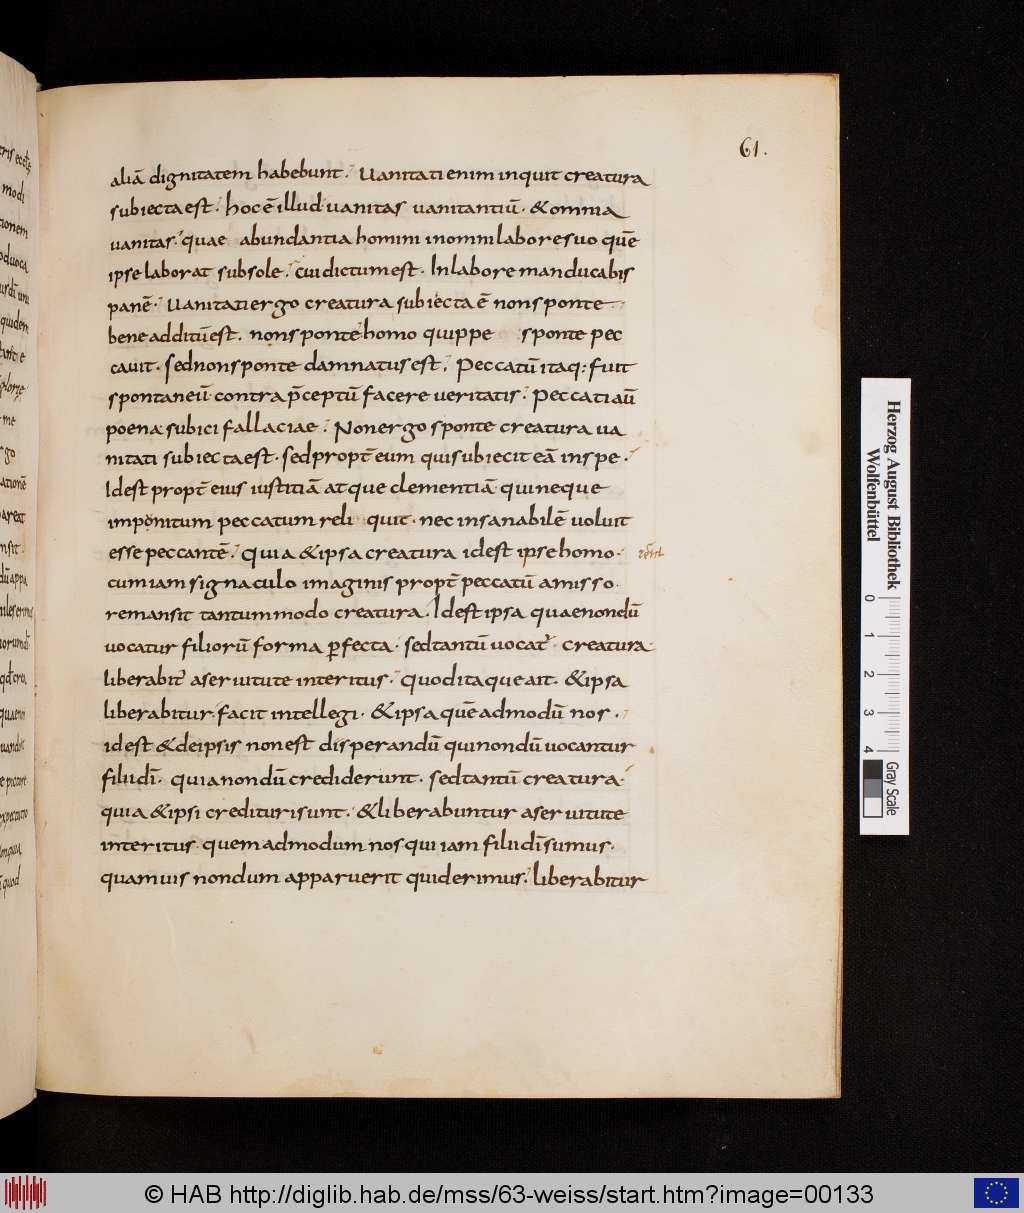 61.
aliā dignitatem habebunt. Uanitati enim inquit creatura
subiecta est. hoc ē illud uanitas uanitantiū. & omnia
uanitas. quae abundantia homini in omni labore suo quē
ipse laborat sub sole. cui dictum est. In labore manducabis
panē. Uanitati ergo creatura subiecta ē non sponte
bene additū est. non sponte homo quippe sponte pec
cauit. sed non sponte damnatus est. Peccatū itaq: fuit
spontaneū contra p̄ceptū facere ueritatis. Peccati aū
poena subici fallaciae. Non ergo sponte creatura ua
nitati subiecta est. sed propt̄ eum qui subiecit eā in spe.
Idest propt̄ eius iustitiā atque clementiā qui neque
imponitum peccatum reli quit. nec insanabilē uoluit
esse peccantē. Quia & ipsa creatura idest ipse homo.
cum iam signaculo imaginis propt̄ peccatū amisso.
remansit tantummodo creatura. Idest ipsa quae nondū
uocatur filiorū forma ꝑfecta. sed tantū uocat̄ creatura
liberabit̄ a seruitute interitus. Quod itaque ait. & ipsa
liberabitur. facit intellegi. & ipsa quēadmodū nos.
idest & de ipsis non est disperandū qui nondū uocantur
filii dī. quia nondū crediderunt. sed tantū creatura.
quia & ipsi credituri sunt. & liberabuntur a seruitute
interitus quemadmodum nos qui iam filii dī sumus.
quamuis nondum apparuerit quid erimus. liberabitur
Herzog August Bibliothek
Wolfenbüttel
0 1 2 3 4
Gray Scale
© HAB http://diglib.hab.de/mss/63-weiss/start.htm?image=00133